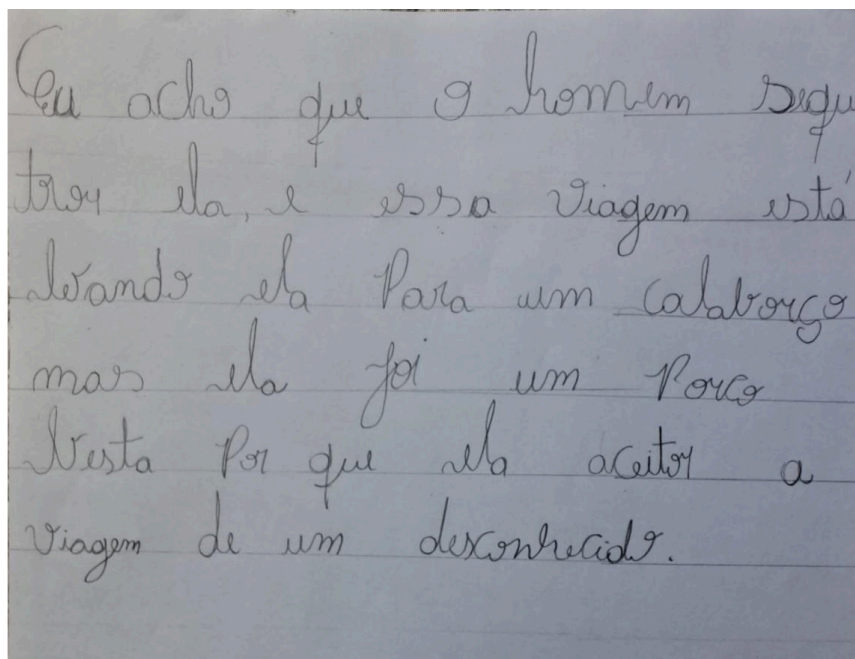 Eu acho que o homem sequ
trou ela, e essa viagem está
levando ela Para um calaborço
mas ela foi um Porco
besta Por que ela aceitor a
viagem de um desconhecido.